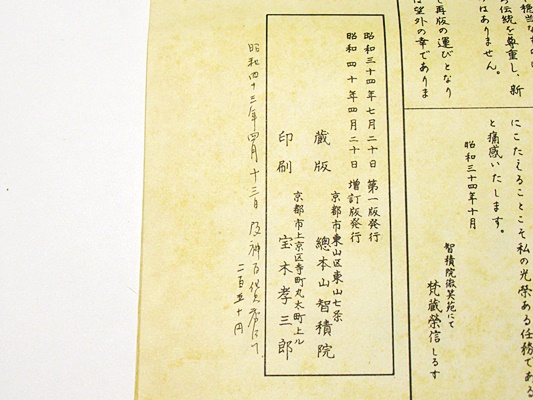 穏当なもの
の伝統を尊重し、新
はありません。
し再版の運びとなり
は望外の幸でありま
にこたえることこそ私の光榮ある任務である
と痛感いたします。
昭和三十四年十月
智積院微笑苑にて
梵蔵榮信しるす
昭和三十四年七月二十日 第一版発行
昭和四十年四月二十日 増訂版発行
京都市東山区東山七条
蔵版 總本山智積院
京都市上京区寺町丸太町上ル
印刷 宝木孝三郎
昭和四十三年四月十三日 阪神百貨店にて
二百五十円